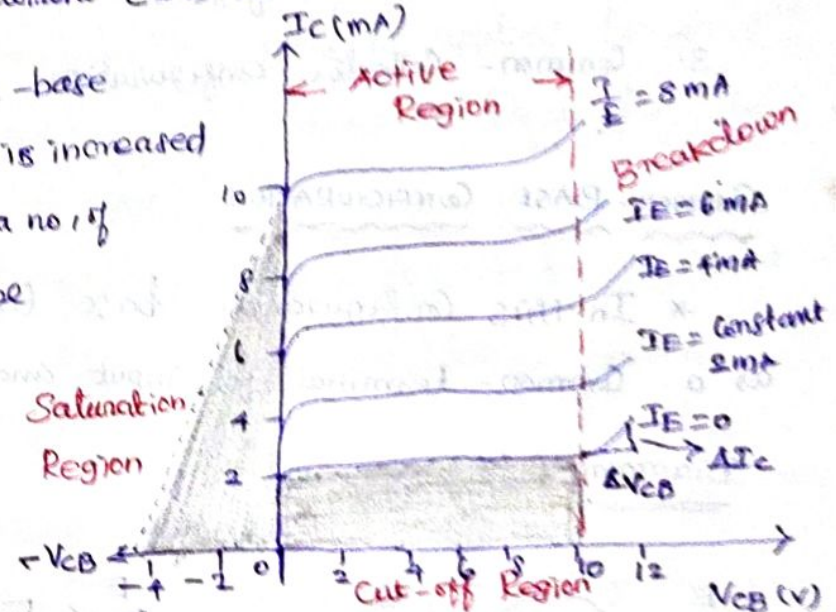 -base
is increased
a no, of
IC (mA)
Active
Region
IE = 8 mA
Breakdown
IE = 6 mA
IE = 4mA
IE = Constant
2mA
IE = 0
ΔIc
ΔVCB
10
8
6
4
2
Saturation
Region
-VCB
-4
0
2
4
6
8
10
12
Cut-off Region
VCB (V)